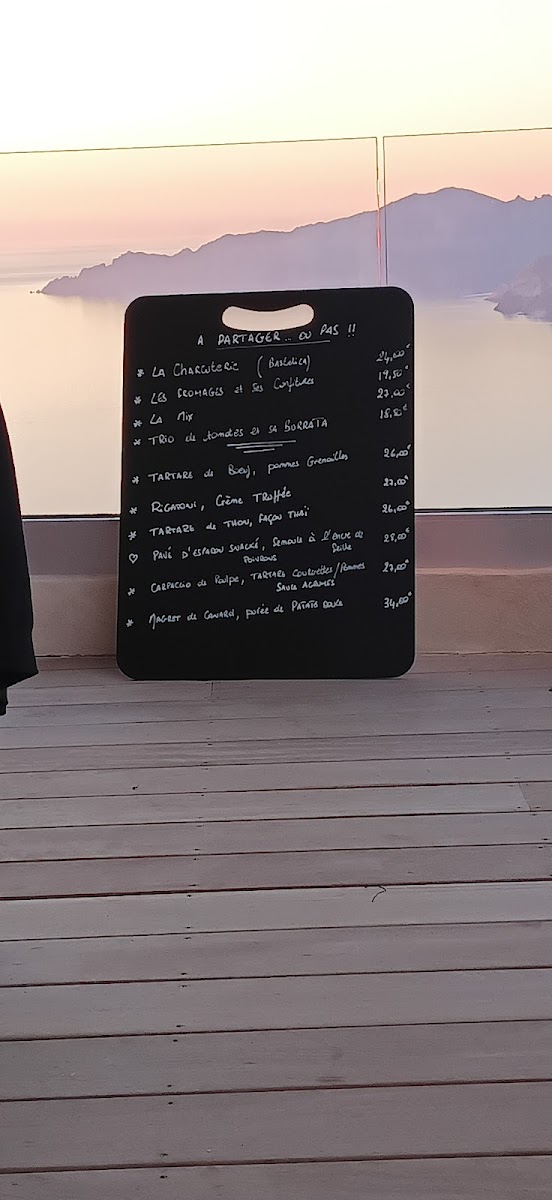 A PARTAGER... OU PAS !!
* LA CHARCUTERIE (BASTELICA) 24,00€
* LES FROMAGES et Ses Confitures 19,50€
* LA Mix 27,00€
* TRIO de tomates et sa BURRATA 18,50€
* TARTARE de Boeuf, pommes Grenailles 26,00€
* RIGATONI, Crème TRUFFÉE 27,00€
* TARTARE de THON, FAÇON THAÏ 26,00€
♡ PAVÉ D'ESPADON SNACKÉ, Semoule à l'encre de 28,00€
POIVRONS Seiche
* CARPACCIO de Poulpe, TARTARE Courgettes/Pommes 27,00€
SAUCE AGRUMES
* MAGRET de CANARD, purée de PATATE DOUCE 34,00€